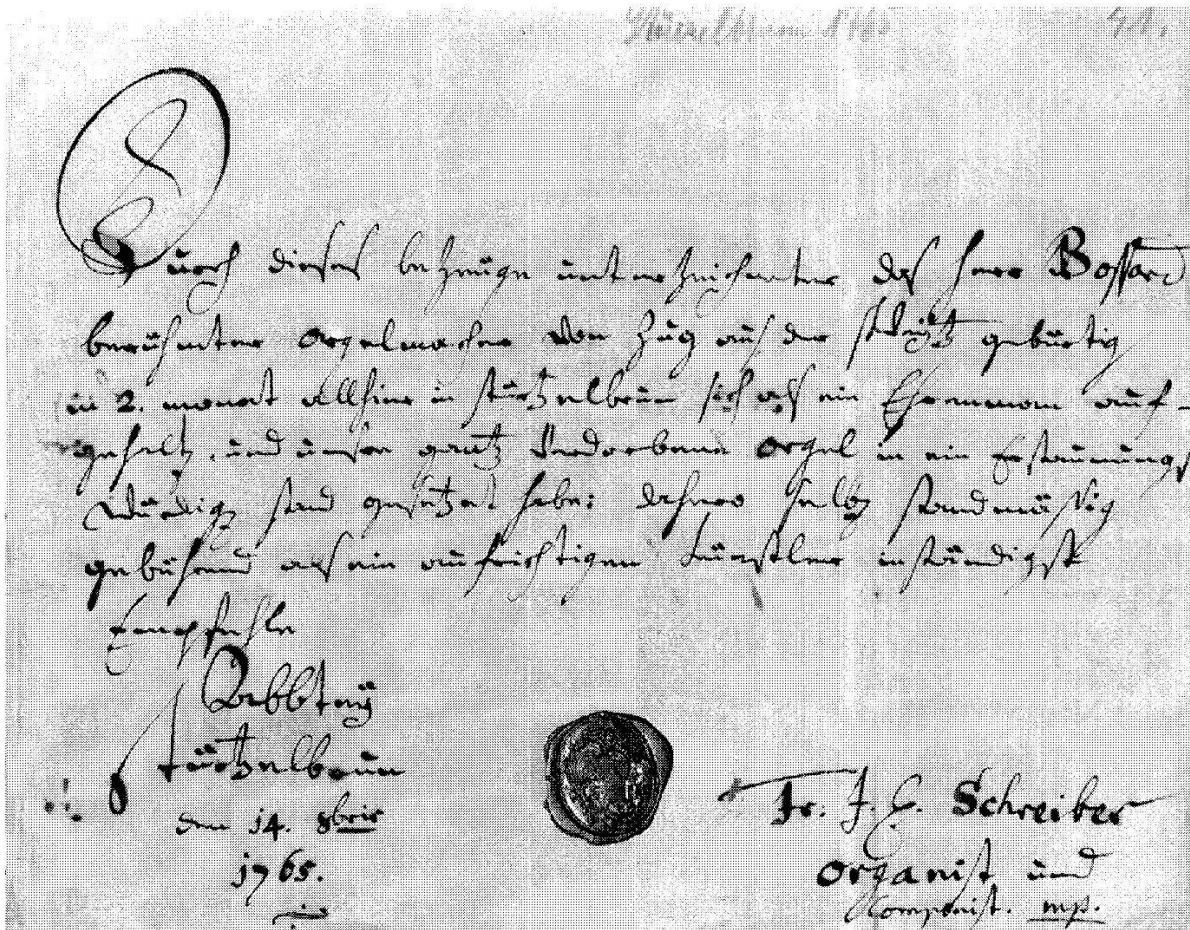 Stürzelbrunn 1765
Durch dieses bezeüge unterzeichneter das herr Bossard
berühmter orgelmacher von Zug aus der schweitz gebürtig
in 2. monat allhier in stürtzelbrun sich als ein Ehrenmann auf-
gehalten, und unsere gantz verdorbene orgel in ein Erstaunungs
würdigen stand gesetzet habe: dahero selben standmässig
gebührend als ein aufrichtigen künstler inständigst
Empfehle
Abbteÿ
stürtzelbrun
den 14. 8bris
1765.
Fr. J. C. Schreiber
organist und
Componist. mp.